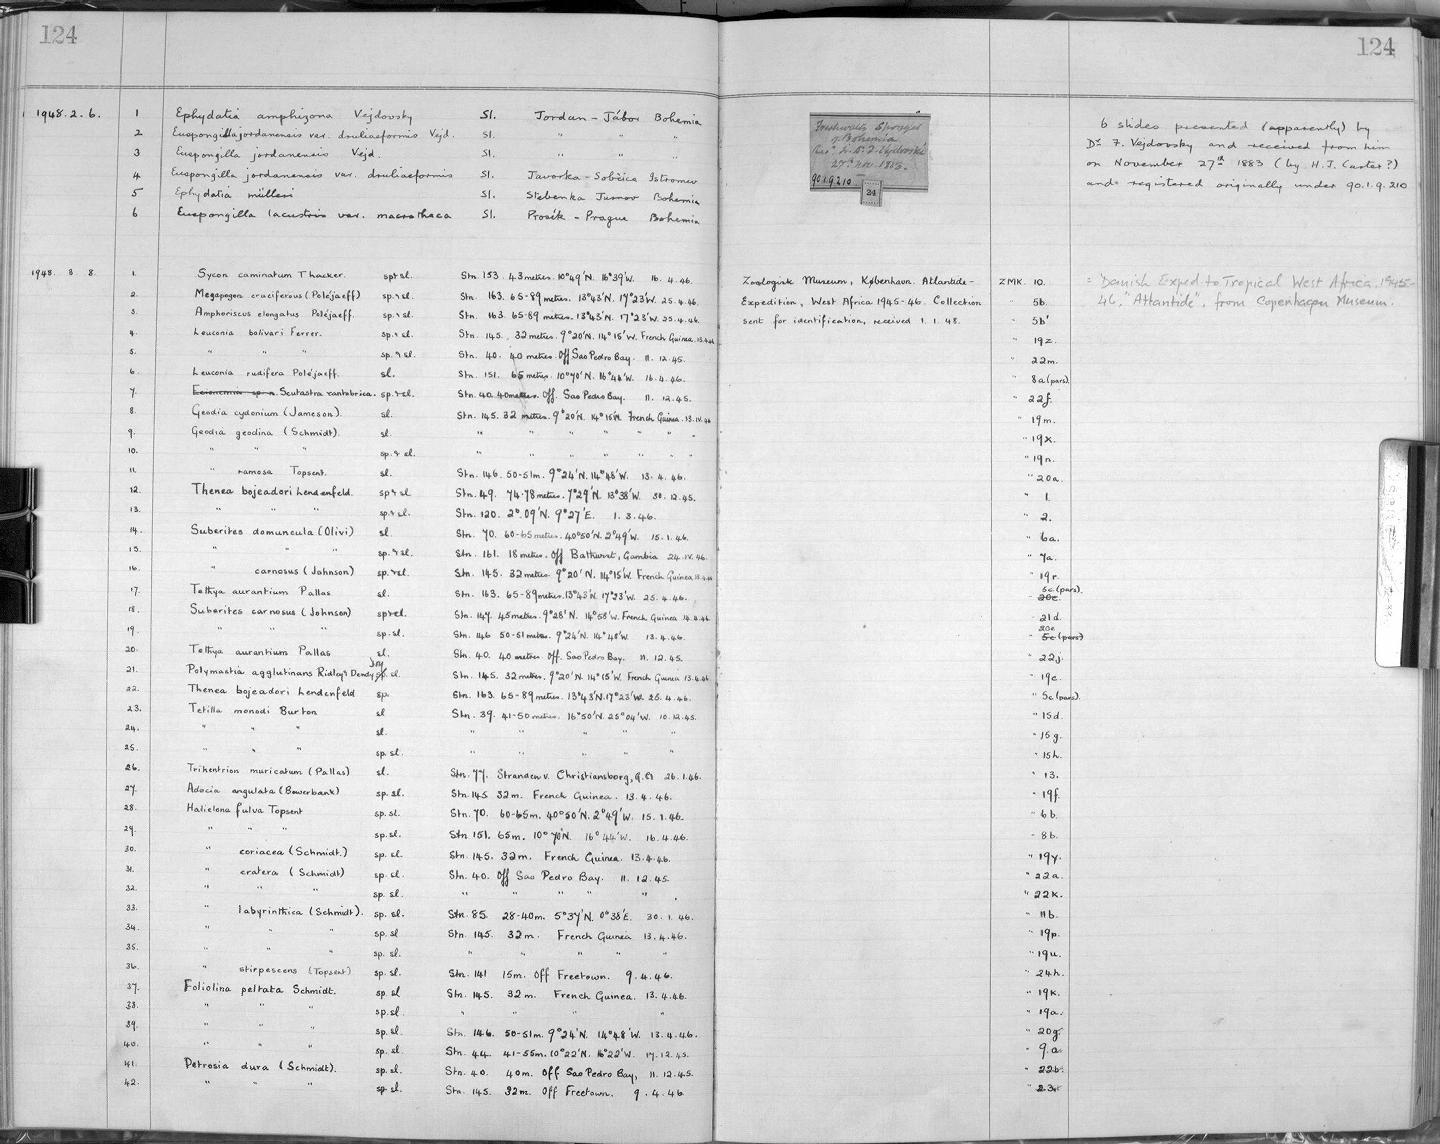 124
124
1948.2.6. 1 Ephydatia amphizona Vejdovsky Sl. Jordan - Jábor Bohemia
2 Euspongilla jordanensis var. druliaeformis Vejd. Sl. " " "
3 Euspongilla jordanensis Vejd. Sl. " " "
4 Euspongilla jordanensis var. druliaeformis Sl. Javorka - Sobčica Istromer
5 Ephydatia mülleri Sl. Stebenka Jurnov Bohemia
6 Euspongilla lacustris var. macrotheca Sl. Prosék - Prague Bohemia
Freshwater Sponges
of Bohemia
27th Nov. 1883.
90.1.9.210
24
6 slides presented (apparently) by
Dr F. Vejdovsky and received from him
on November 27th 1883 (by H.J. Carter?)
and registered originally under 90.1.9.210
1948. 3 8. 1. Sycon caminatum Thacker. sp & sl. Stn. 153. 43 metres. 10°49'N. 16°39'W. 16.4.46. Zoologisk Museum, København. Atlantide- ZMK. 10. = Danish Exped to Tropical West Africa, 1945-
2. Megapogon cruciferous (Poléjaeff) sp. & sl. Stn. 163. 65-89 metres. 13°43'N. 17°23'W. 25.4.46. Expedition, West Africa 1945-46. Collection " 5b. 46, "Atlantide", from Copenhagen Museum.
3. Amphoriscus elongatus Poléjaeff. sp. & sl. Stn. 163. 65-89 metres. 13°43'N. 17°23'W. 25.4.46. sent for identification, received 1.1.48. " 5b'
4. Leuconia bolivari Ferrer. sp. & sl. Stn. 145. 32 metres. 9°20'N. 14°15'W. French Guinea. 13.4.46 " 19z.
5. " " " sp. & sl. Stn. 40. 40 metres. Off Sao Pedro Bay. 11. 12.45. " 22m.
6. Leuconia rudifera Poléjaeff. sl. Stn. 151. 65 metres. 10°70'N. 16°44'W. 16.4.46. " 8a (pars).
7. Ecionemia sp. n. Scutastra cantabrica. sp. & sl. Stn. 40. 40 metres. Off. Sao Pedro Bay. 11. 12.45. " 22f.
8. Geodia cydonium (Jameson). sl. Stn. 145. 32 metres. 9°20'N. 14°15'W. French Guinea. 13.IV.46 " 19m.
9. Geodia geodina (Schmidt). sl. " " " " " " 19x.
10. " " " sp. & sl. " " " " " " 19n.
11. " ramosa Topsent. sl. Stn. 146. 50-51m. 9°24'N. 14°48'W. 13.4.46. " 20a.
12. Thenea bojeadori Lendenfeld. sp & sl Stn. 49. 74-78 metres. 7°29'N. 13°38'W. 30.12.45. " 1.
13. " " " sp. & sl. Stn. 120. 2°.09'N. 9°27'E. 1.3.46. " 2.
14. Suberites domuncula (Olivi) sl Stn. 70. 60-65 metres. 40°50'N. 2°49'W. 15.1.46. " 6a.
15. " " " sp. & sl. Stn. 161. 18 metres. Off Bathurst, Gambia 24.IV.46. " 7a.
16. " carnosus (Johnson) sp. & sl. Stn. 145. 32 metres. 9°20'N. 14°15'W. French Guinea 13.4.46 " 19r.
17. Tethya aurantium Pallas sl. Stn. 163. 65-89 metres. 13°43'N. 17°23'W. 25.4.46. " 20e. 5c (pars).
18. Suberites carnosus (Johnson) sp & sl Stn. 147. 45 metres. 9°28'N. 14°58'W. French Guinea. 14.4.46. " 21d.
19. " " " sp. sl. Stn. 146 50-51 metres. 9°24'N. 14°48'W. 13.4.46. " 5c (pars) 20e
20. Tethya aurantium Pallas sl. Stn. 40. 40 metres. Off. Sao Pedro Bay. 11. 12.45. " 22j.
21. Polymastia agglutinans Ridley & Dendy dry sp. sl. Stn. 145. 32 metres. 9°20'N. 14°15'W. French Guinea 13.4.46. " 19c.
22. Thenea bojeadori Lendenfeld sp. Stn. 163. 65-89 metres. 13°43'N. 17°23'W. 25.4.46. " 5c (pars).
23. Tetilla monodi Burton sl Stn. 39. 41-50 metres. 16°50'N. 25°04'W. 10.12.45. " 15d.
24. " " " sl. " " " " " " 15g.
25. " " " sp. sl. " " " " " " 15h.
26. Trikentrion muricatum (Pallas) sl. Stn. 77. Stranden v. Christiansborg, G.C. 26.1.46. " 13.
27. Adocia angulata (Bowerbank) sp. sl. Stn 145 32m. French Guinea. 13.4.46. " 19f.
28. Haliclona fulva Topsent sp. sl. Stn. 70. 60-65m. 40°50'N. 2°49'W. 15.1.46. " 6b.
29. " " " sp. sl. Stn 151. 65m. 10°70'N. 16°44'W. 16.4.46. " 8b.
30. " coriacea (Schmidt.) sp. sl. Stn. 145. 32m. French Guinea. 13.4.46. " 19y.
31. " cratera (Schmidt) sp. sl. Stn. 40. Off Sao Pedro Bay. 11. 12.45. " 22a.
32. " " " sp. sl. " " " " " " 22k.
33. " labyrinthica (Schmidt). sp. sl. Stn. 85. 28-40m. 5°37'N. 0°38'E. 30.1.46. " 11b.
34. " " " sp. sl Stn. 145. 32m. French Guinea 13.4.46. " 19p.
35. " " " sp. sl. " " " " " " 19u.
36. " stirpescens (Topsent) sp. sl. Stn. 141 15m. Off Freetown. 9.4.46. " 24h.
37. Foliolina peltata Schmidt. sp. sl Stn. 145. 32m. French Guinea. 13.4.46. " 19k.
38. " " " sp. sl. " " " " " 19a.
39. " " " sp. sl. Stn. 146. 50-51m. 9°24'N. 14°48'W. 13.4.46. " 20g.
40. " " " sp. sl. Stn. 44. 41-55m. 10°22'N. 16°22'W. 17.12.45. " 9.a.
41. Petrosia dura (Schmidt). sp. sl. Stn. 40. 40m. Off Sao Pedro Bay, 11. 12.45. " 22b.
42. " " " sp. sl. Stn. 145. 32m. Off Freetown. 9.4.46. " 23.